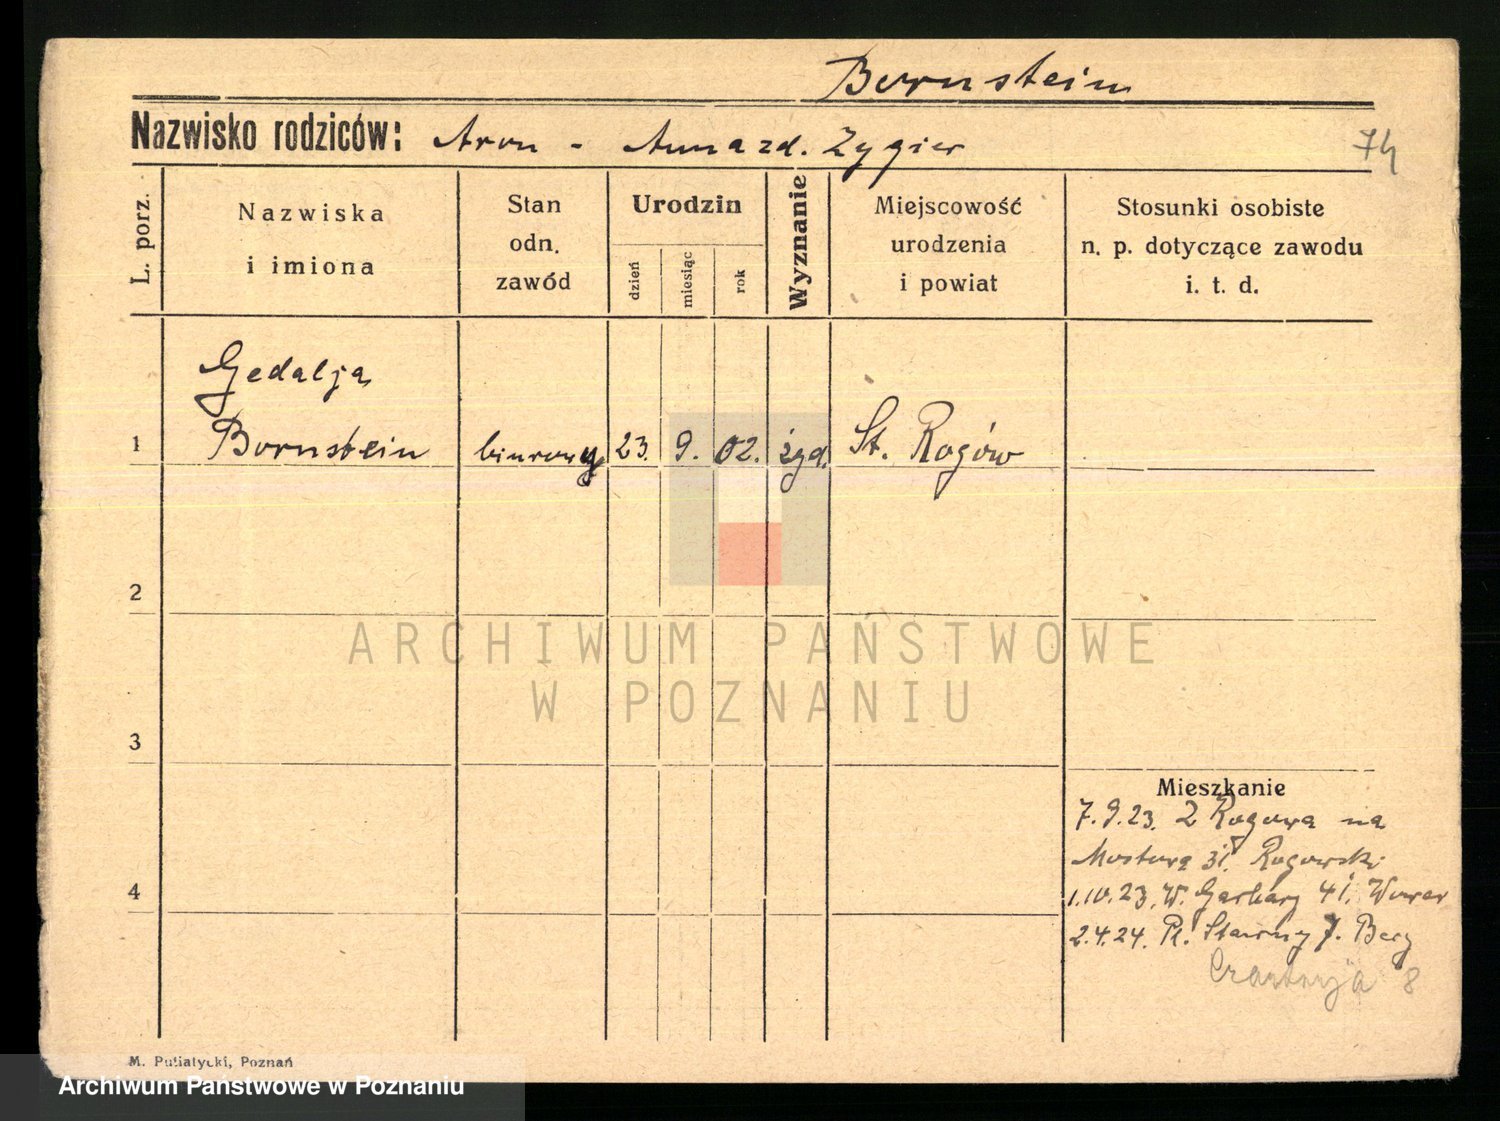 Bornstein
Nazwisko rodziców: Aron - Anna zd. Zygier
74
L. porz.
Nazwiska
i imiona
Stan
odn.
zawód
Urodzin
dzień
miesiąc
rok
Wyznanie
Miejscowość
urodzenia
i powiat
Stosunki osobiste
n. p. dotyczące zawodu
i. t. d.
Gedalja
1 Bornstein biurowy 23. 9. 02. żyd. St. Rogów
2
ARCHIWUM PAŃSTWOWE
W POZNANIU
3
Mieszkanie
7.9.23. Z Rogowa na
Mostowa 31. Rogowski
4
1.10.23. W. Garbary 41.
2.4.24. Pl. Stawny 7. Berg
8
M. Putiatycki, Poznań
Archiwum Państwowe w Poznaniu